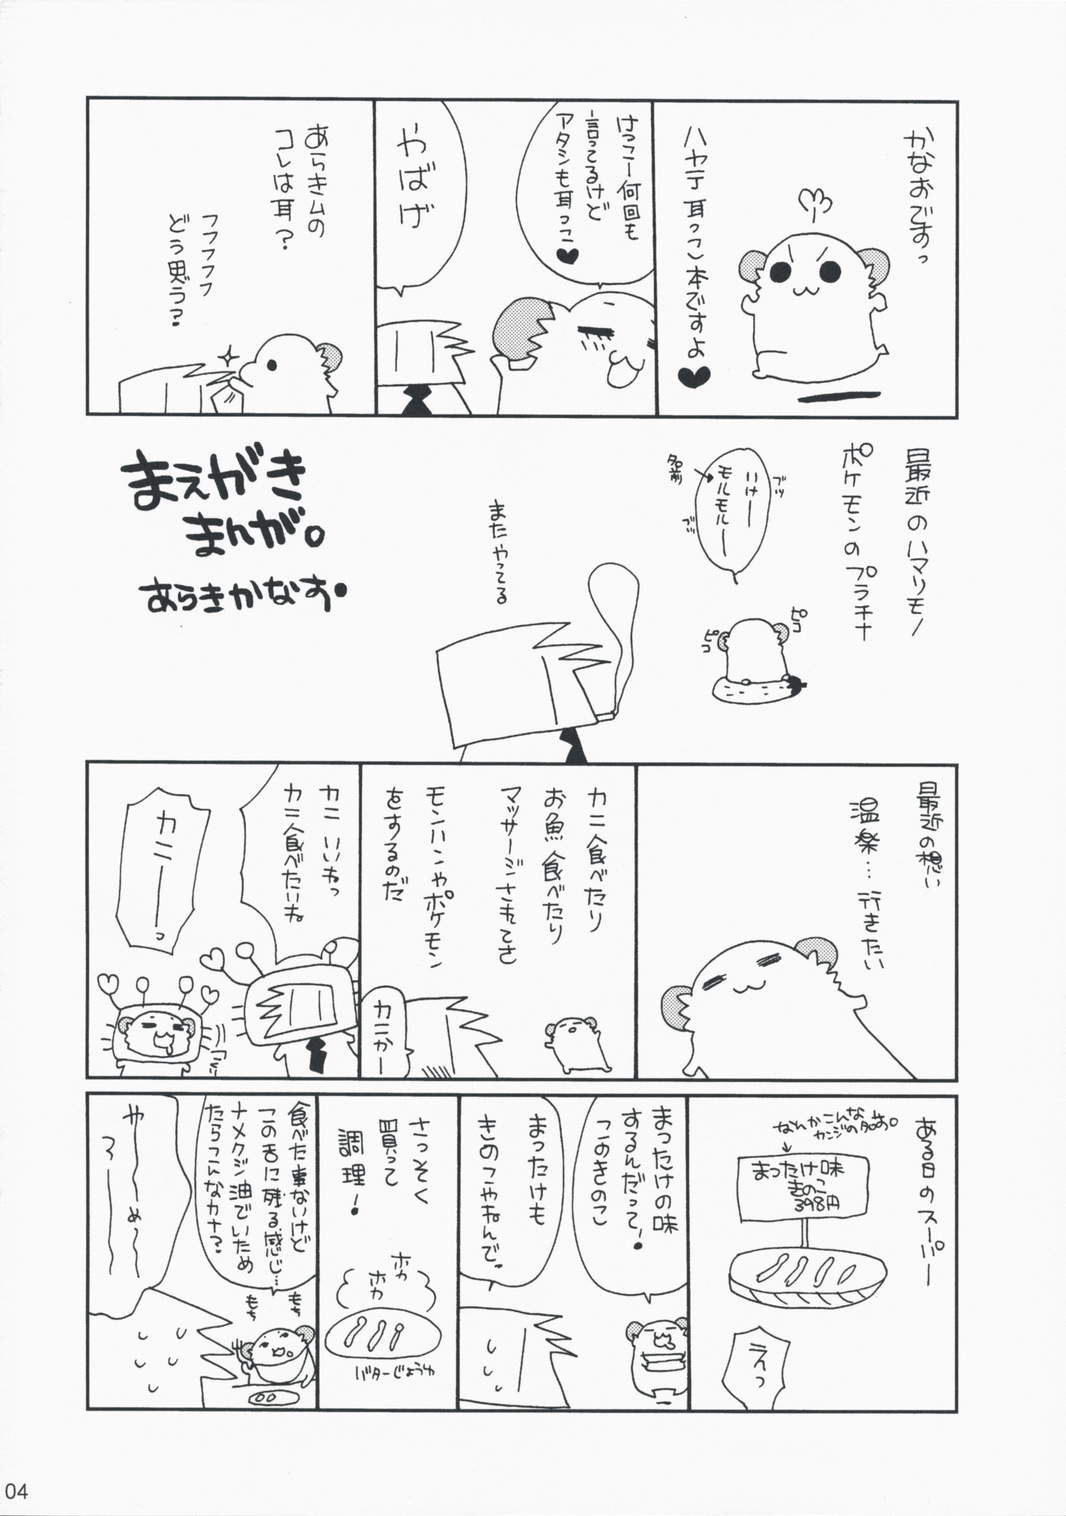 かなおですっ
ハヤテ耳っこ本ですよ♥
けっこー何回も
言ってるけど
アタシも耳っこ♥
やばげ
あらきムの
コレは耳?
フフフフフ
どう思う?
まえがき
まんが。
あらきかなお。
最近のハマりモノ
ポケモンのプラチナ
いけー
モルモルー
名前
ブツ
ブツ
ピコ
ピコ
またやってる
最近の想い
温楽…行きたい
カニ食べたり
お魚食べたり
マッサージされてさ
モンハンやポケモン
をするのだ
カニかー
カニいいねっ
カニ食べたいね
カニーーっ
ある日のスーパー
なんかこんな
カンジの名前。
まったけ味
きのこ
398円
えっ
まったけの味
するんだって!
このきのこ
まったけも
きのこやねんで。
さっそく
買って
調理!
ホカ
ホカ
バターじょうゆ
食べた事ないけど
この舌に残る感じ…
ナメクジ油でいため
たらこんなカナ?
もち
もち
や―――め―――
ろ―――
04